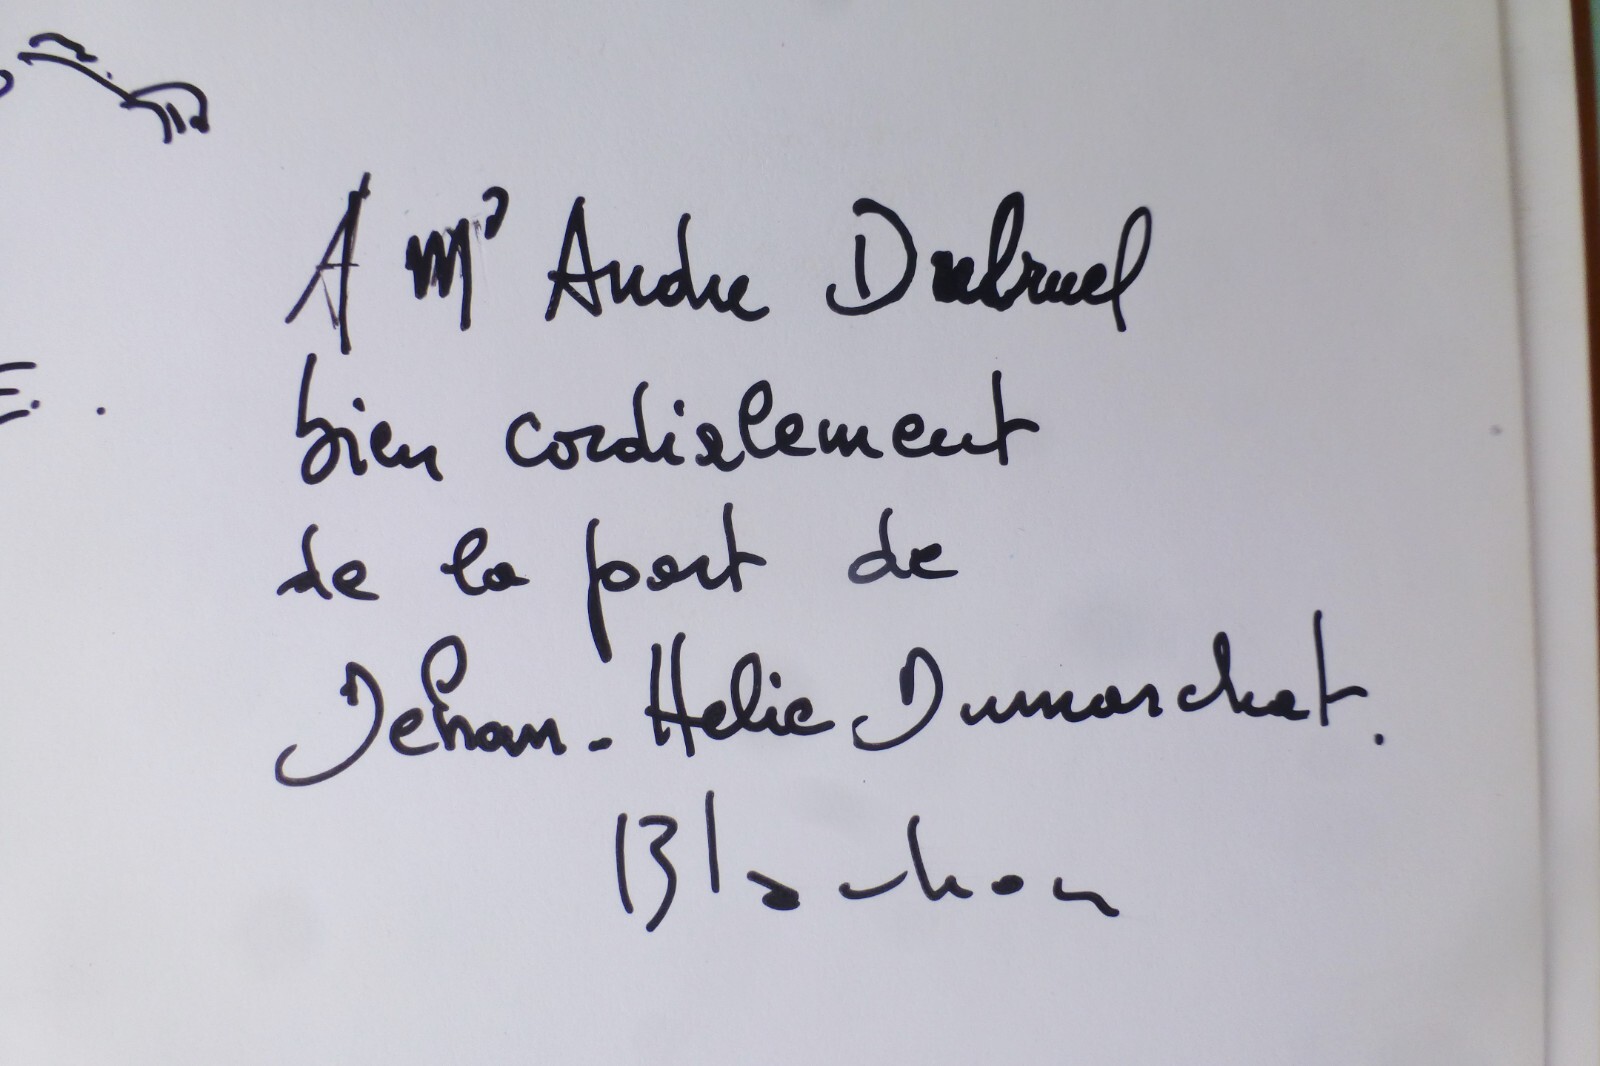 E. .
A Mr Andre Dubruel
bien cordialement
de la part de
Jehan-Helie Dumarchat.
Blanchon